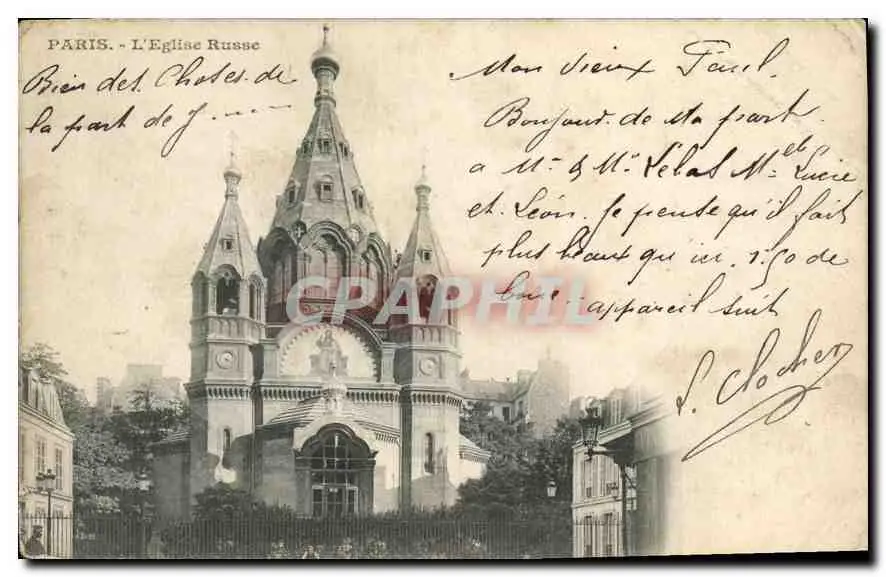 PARIS. - L'Eglise Russe
Bien des Choses de
la part de J.....
Mon vieux Paul,
Bonjour de Ma part
a Mr & Mme Lebas Melle Lucie
et Léon. Je pense qu'il fait
plus beau qu'ici 1.50 de
boue - appareil suit
L. Clocher
CAPHILA